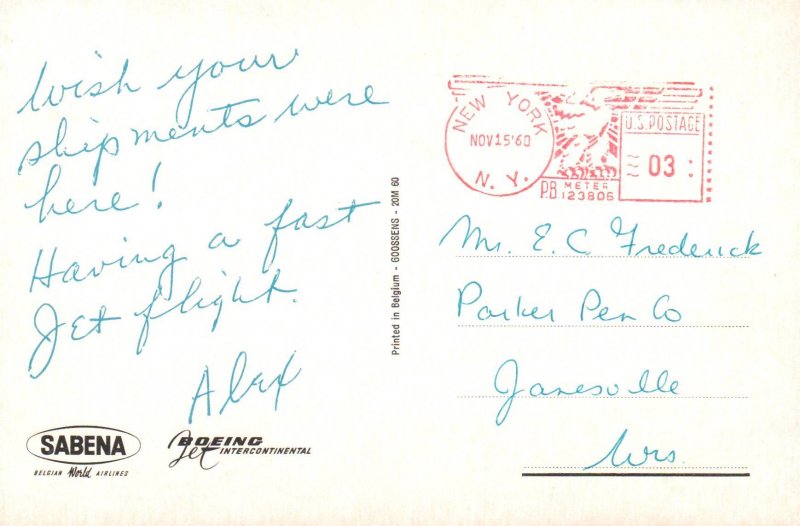 Wish your
shipments were
here!
Having a fast
Jet flight.
Alex
SABENA
BELGIAN World AIRLINES
BOEING
Jet INTERCONTINENTAL
Printed in Belgium - GOOSSENS - 20M 60
NEW YORK
NOV 15 '60
N. Y.
P.B. METER
123806
U.S. POSTAGE
03
Mr. E. C. Frederick
Parker Pen Co
Janesville
Wis.